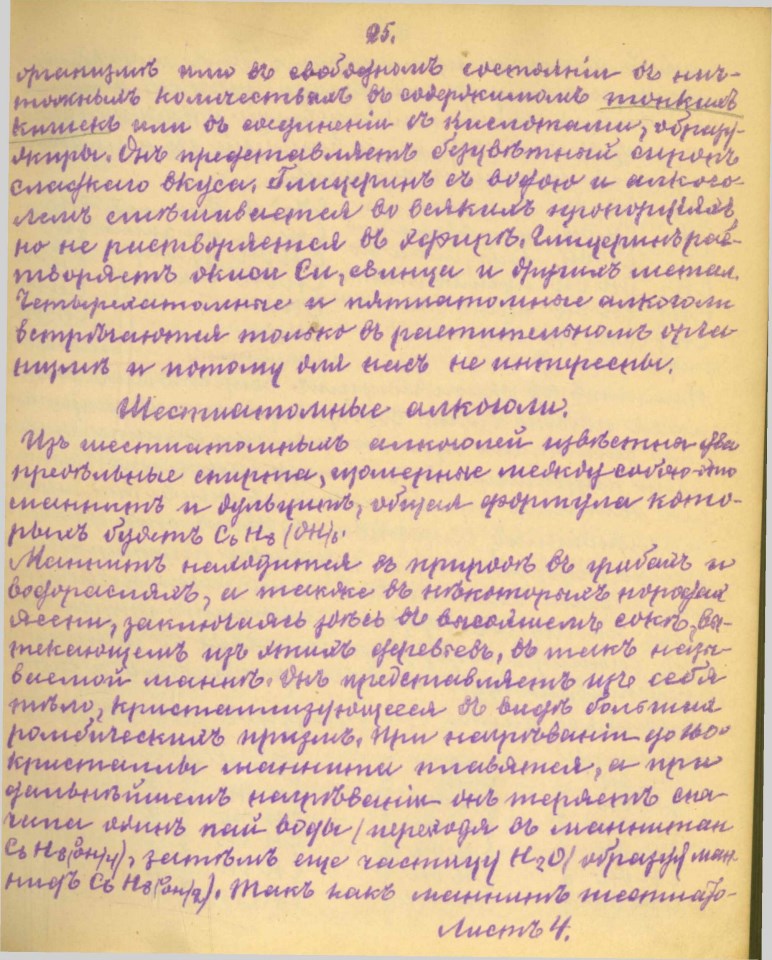 25.
организмѣ или въ свободномъ состояніи въ нич-
тожныхъ количествахъ въ содержимомъ тонкихъ
кишекъ или въ соединеніи съ кислотами, образуя
жиры. Онъ представляетъ безцвѣтный сиропъ
сладкаго вкуса. Глицеринъ съ водою и алкого-
лемъ смѣшивается во всякихъ пропорціяхъ,
но не растворяется въ эфирѣ. Глицеринъ рас-
творяетъ окиси Cu, свинца и другихъ метал.
Четырехатомные и пятиатомные алкоголи
встрѣчаются только въ растительномъ орга-
низмѣ и потому для насъ не интересны.
Шестиатомные алкоголи.
Изъ шестиатомныхъ алкоголей извѣстны два
предѣльные спирта, изомерные между собою это
маннитъ и дульцитъ, общая формула кото-
рыхъ будетъ C6 H8 (OH)6.
Маннитъ находится въ природѣ въ грибахъ и
водоросляхъ, а также въ нѣкоторыхъ породахъ
ясени, заключаясь здѣсь въ высохшемъ сокѣ, вы-
текающемъ изъ этихъ деревьевъ, въ такъ назы-
ваемой маннѣ. Онъ представляетъ изъ себя
тѣло, кристаллизующееся въ видѣ большихъ
ромбическихъ призмъ. При нагрѣваніи до
кристаллы маннита плавятся, а при
дальнѣйшемъ нагрѣваніи онъ теряетъ сна-
чала одинъ пай воды (переходя въ маннитан
C6 H8 (OH)4), затѣмъ еще частицу H2O (образуя ман-
нидъ C6 H8 (OH)2). Такъ какъ маннитъ шестиато-
Листъ 4.